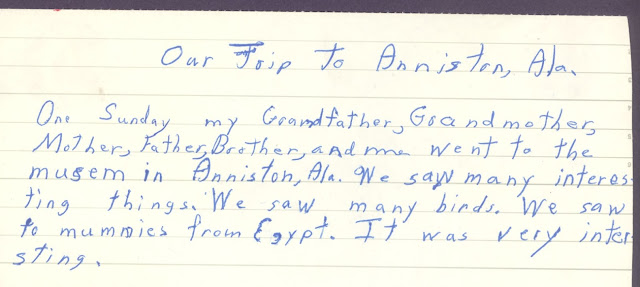 Our Trip To Anniston, Ala.
One Sunday my Grandfather, Grandmother,
Mother, Father, Brother, and me went to the
musem in Anniston, Ala. We saw many interes-
ting things. We saw many birds. We saw
to mummies from Egypt. It was very inter
sting.